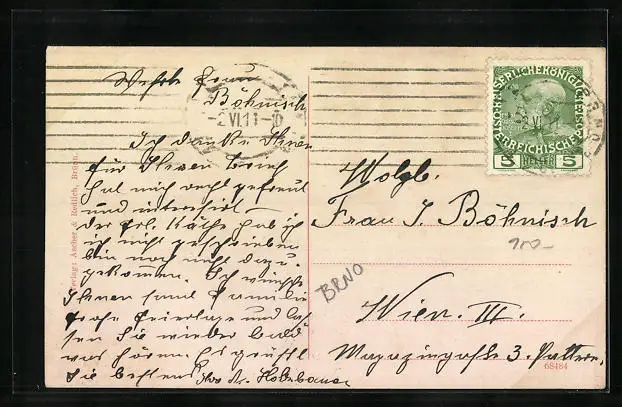 Werthe Frau
Böhnisch
Ich danke Ihnen
für Ihren Brief
hat mich recht gefreut
und interssirt
der Frl. Käthe hab ich
ich nicht geschrieben
bin noch nicht dazu
gekommen. Ich wünsche
Ihnen samt Familie
frohe Feiertage und las-
sen Sie wieder bald
was hören. Es grüsst
Sie bestens Ihr
-2.VI.11-
KAISERLICHE KÖNIGLICHE ÖSTERREICHISCHE POST
5 HELLER 5
Wolgb.
Frau J. Böhnisch
100-
BRNO
Wien. III.
Magazingasse 3.
68484
Verlag: Ascher & Redlich, Brünn.